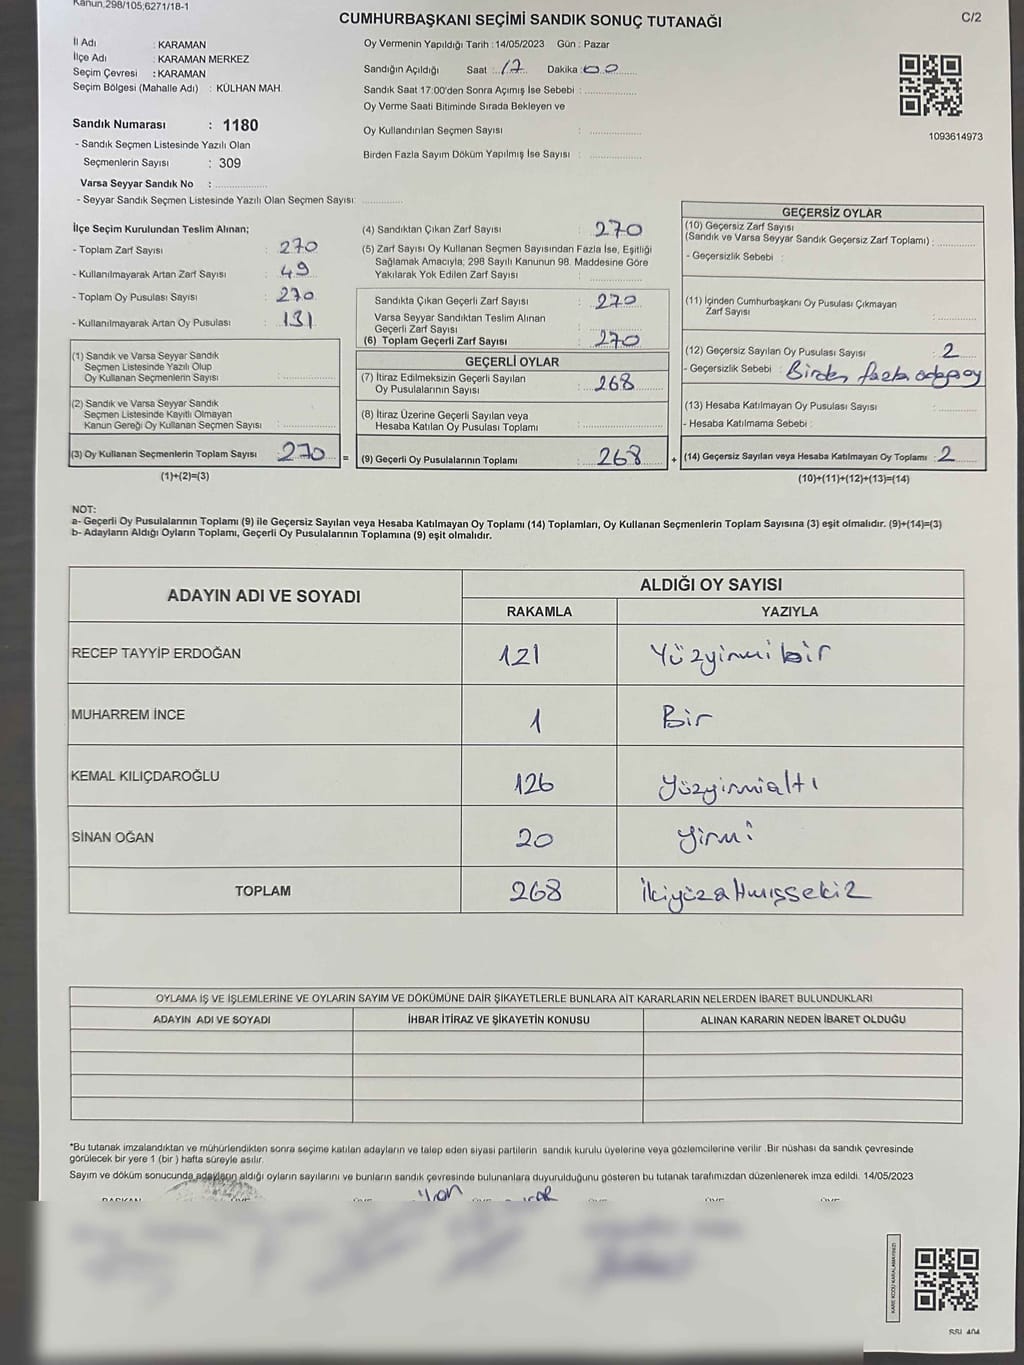 Kanun,298/105;6271/18-1
CUMHURBAŞKANI SEÇİMİ SANDIK SONUÇ TUTANAĞI
C/2
İl Adı : KARAMAN
İlçe Adı : KARAMAN MERKEZ
Seçim Çevresi : KARAMAN
Seçim Bölgesi (Mahalle Adı) : KÜLHAN MAH.
Sandık Numarası : 1180
- Sandık Seçmen Listesinde Yazılı Olan
Seçmenlerin Sayısı : 309
Varsa Seyyar Sandık No :
- Seyyar Sandık Seçmen Listesinde Yazılı Olan Seçmen Sayısı:
Oy Vermenin Yapıldığı Tarih : 14/05/2023 Gün : Pazar
Sandığın Açıldığı Saat : 17 Dakika : 00
Sandık Saat 17:00'den Sonra Açımış İse Sebebi :
Oy Verme Saati Bitiminde Sırada Bekleyen ve
Oy Kullandırılan Seçmen Sayısı :
Birden Fazla Sayım Döküm Yapılmış İse Sayısı :
1093614973
İlçe Seçim Kurulundan Teslim Alınan;
- Toplam Zarf Sayısı : 270
- Kullanılmayarak Artan Zarf Sayısı : 49
- Toplam Oy Pusulası Sayısı : 270
- Kullanılmayarak Artan Oy Pusulası : 131
(1) Sandık ve Varsa Seyyar Sandık
Seçmen Listesinde Yazılı Olup
Oy Kullanan Seçmenlerin Sayısı :
(2) Sandık ve Varsa Seyyar Sandık
Seçmen Listesinde Kayıtlı Olmayan
Kanun Gereği Oy Kullanan Seçmen Sayısı :
(3) Oy Kullanan Seçmenlerin Toplam Sayısı : 270 =
(1)+(2)=(3)
(4) Sandıktan Çıkan Zarf Sayısı : 270
(5) Zarf Sayısı Oy Kullanan Seçmen Sayısından Fazla İse, Eşitliği
Sağlamak Amacıyla, 298 Sayılı Kanunun 98. Maddesine Göre
Yakılarak Yok Edilen Zarf Sayısı :
Sandıkta Çıkan Geçerli Zarf Sayısı : 270
Varsa Seyyar Sandıktan Teslim Alınan
Geçerli Zarf Sayısı :
(6) Toplam Geçerli Zarf Sayısı : 270
GEÇERLİ OYLAR
(7) İtiraz Edilmeksizin Geçerli Sayılan
Oy Pusulalarının Sayısı : 268
(8) İtiraz Üzerine Geçerli Sayılan veya
Hesaba Katılan Oy Pusulası Toplamı :
(9) Geçerli Oy Pusulalarının Toplamı : 268 +
GEÇERSİZ OYLAR
(10) Geçersiz Zarf Sayısı
(Sandık ve Varsa Seyyar Sandık Geçersiz Zarf Toplamı) :
- Geçersizlik Sebebi :
(11) İçinden Cumhurbaşkanı Oy Pusulası Çıkmayan
Zarf Sayısı :
(12) Geçersiz Sayılan Oy Pusulası Sayısı : 2
- Geçersizlik Sebebi : Birden fazla adaya oy
(13) Hesaba Katılmayan Oy Pusulası Sayısı :
- Hesaba Katılmama Sebebi :
(14) Geçersiz Sayılan veya Hesaba Katılmayan Oy Toplamı : 2
(10)+(11)+(12)+(13)=(14)
NOT:
a- Geçerli Oy Pusulalarının Toplamı (9) ile Geçersiz Sayılan veya Hesaba Katılmayan Oy Toplamı (14) Toplamları, Oy Kullanan Seçmenlerin Toplam Sayısına (3) eşit olmalıdır. (9)+(14)=(3)
b- Adayların Aldığı Oyların Toplamı, Geçerli Oy Pusulalarının Toplamına (9) eşit olmalıdır.
ADAYIN ADI VE SOYADI
ALDIĞI OY SAYISI
RAKAMLA YAZIYLA
RECEP TAYYİP ERDOĞAN 121 Yüzyirmibir
MUHARREM İNCE 1 Bir
KEMAL KILIÇDAROĞLU 126 yüzyirmialtı
SİNAN OĞAN 20 yirmi
TOPLAM 268 ikiyüzaltmışsekiz
OYLAMA İŞ VE İŞLEMLERİNE VE OYLARIN SAYIM VE DÖKÜMÜNE DAİR ŞİKAYETLERLE BUNLARA AİT KARARLARIN NELERDEN İBARET BULUNDUKLARI
ADAYIN ADI VE SOYADI İHBAR İTİRAZ VE ŞİKAYETİN KONUSU ALINAN KARARIN NEDEN İBARET OLDUĞU
*Bu tutanak imzalandıktan ve mühürlendikten sonra seçime katılan adayların ve talep eden siyasi partilerin sandık kurulu üyelerine veya gözlemcilerine verilir. Bir nüshası da sandık çevresinde
görülecek bir yere 1 (bir ) hafta süreyle asılır.
Sayım ve döküm sonucunda adayların aldığı oyların sayılarını ve bunların sandık çevresinde bulunanlara duyurulduğunu gösteren bu tutanak tarafımızdan düzenlenerek imza edildi. 14/05/2023
BAŞKAN ÜYE ÜYE ÜYE ÜYE ÜYE
KARE KODU KARALAMAYINIZ!